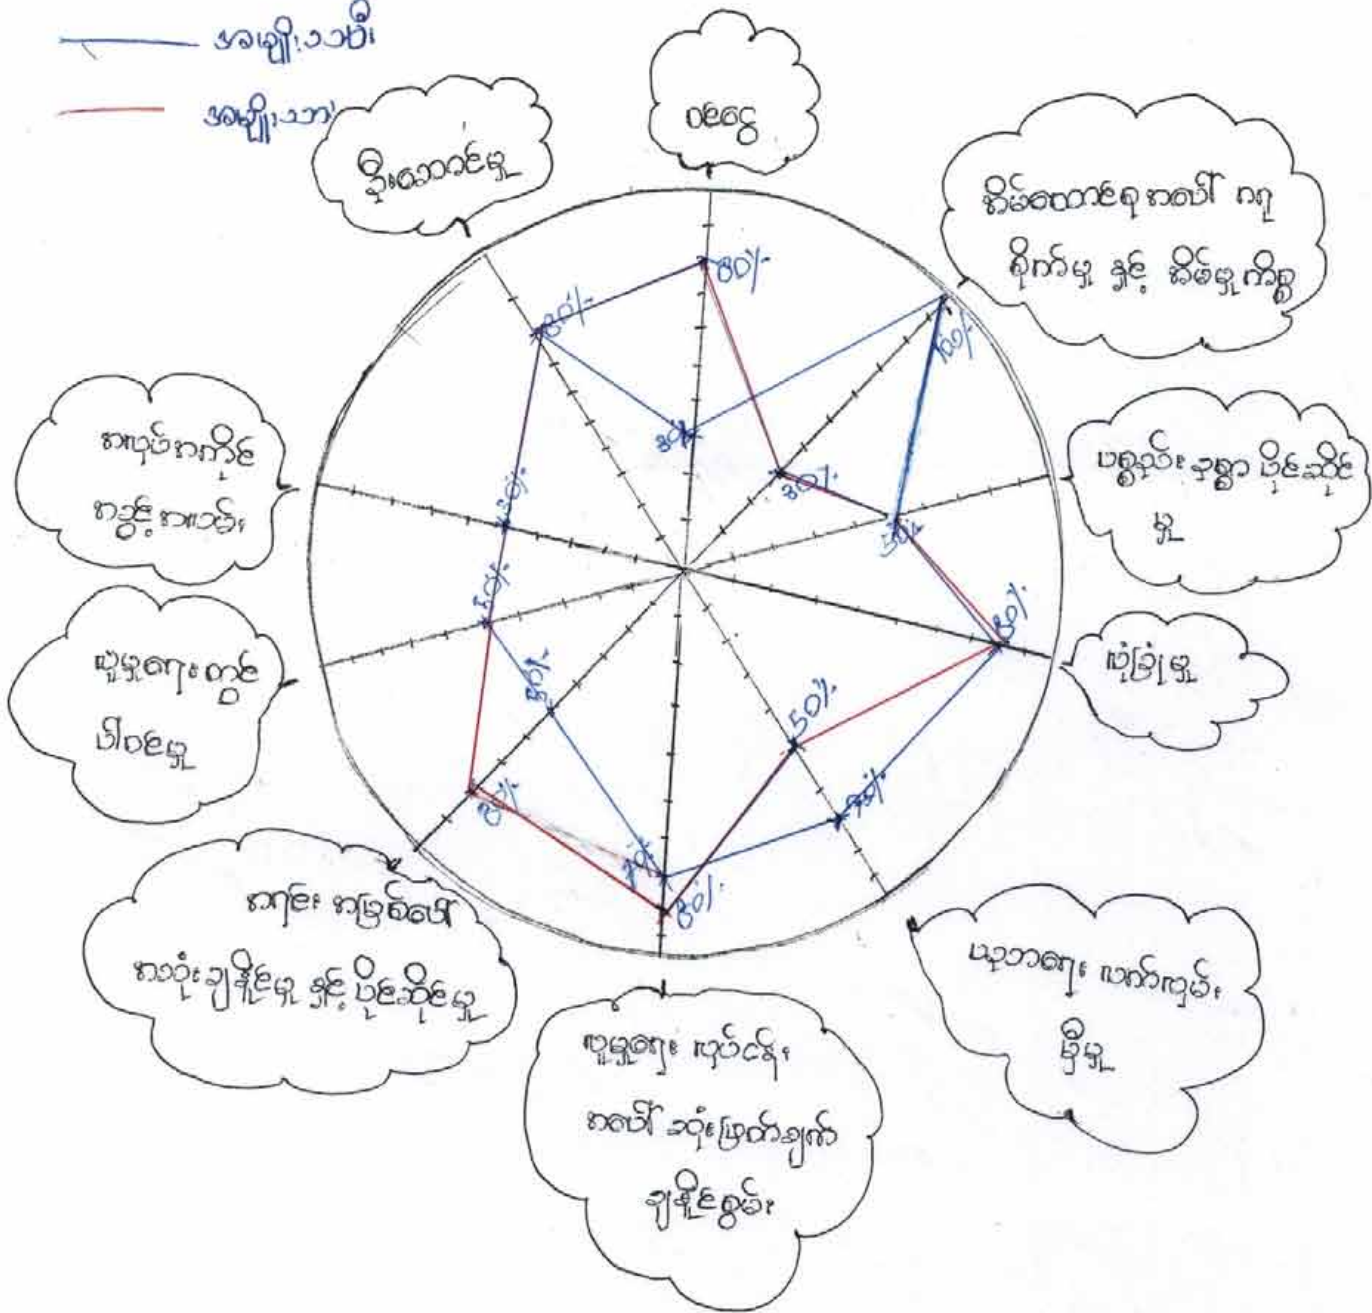 အမျိုးသမီး
အမျိုးသား
ဦးဆောင်မှု
ဝင်ငွေ
အိမ်ထောင်စုအပေါ် ဂရု
စိုက်မှု နှင့် အိမ်မှုကိစ္စ
ပစ္စည်းဥစ္စာ ပိုင်ဆိုင်
မှု
လုံခြုံမှု
ယုဘရေး လက်လှမ်း
မှီမှု
လူမှုရေး လုပ်ငန်း
အပေါ် ဆုံးဖြတ်ချက်
ချနိုင်စွမ်း
အရင်း အမြစ်ပေါ်
အသုံးချနိုင်မှု နှင့် ပိုင်ဆိုင်မှု
လူမှုရေးတွင်
ပါဝင်မှု
အလုပ်အကိုင်
အခွင့်အလမ်း
80%
80%
30%
100%
30%
50%
80%
50%
80%
80%
50%